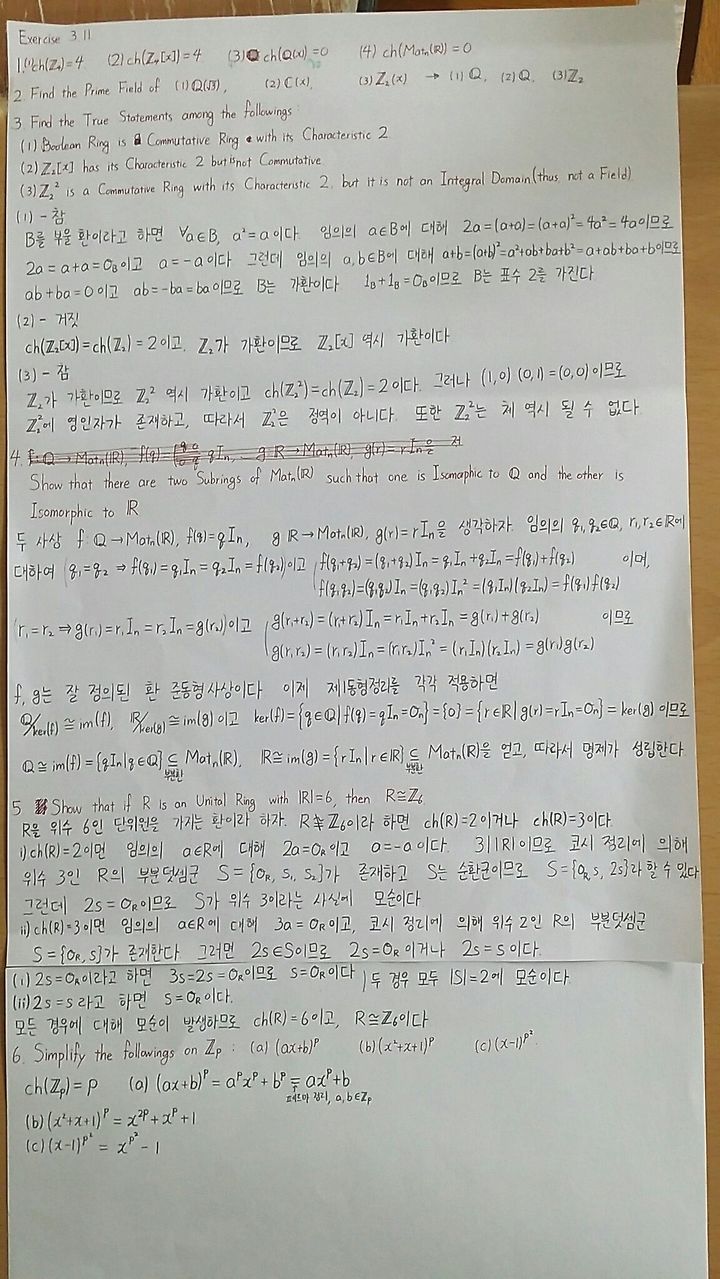 Exercise 3.11
1. (1) ch(ℤ₄)=4 (2) ch(ℤ₄[x])=4 (3) ch(ℚ(x))=0 (4) ch(Matₙ(ℝ))=0
2. Find the Prime Field of (1) ℚ(√3), (2) ℂ(x), (3) ℤ₂(x) → (1) ℚ, (2) ℚ, (3) ℤ₂
3. Find the True Statements among the followings:
(1) Boolean Ring is a Commutative Ring with its Characteristic 2
(2) ℤ₂[x] has its Characteristic 2 but is not Commutative
(3) ℤ₂² is a Commutative Ring with its Characteristic 2, but it is not an Integral Domain (thus not a Field)
(1) - 참
B를 부울 환이라고 하면 ∀a∈B, a²=a이다. 임의의 a∈B에 대해 2a=(a+a)=(a+a)²=4a²=4a이므로
2a=a+a=0_B이고 a=-a이다. 그런데 임의의 a,b∈B에 대해 a+b=(a+b)²=a²+ab+ba+b²=a+ab+ba+b이므로
ab+ba=0이고 ab=-ba=ba이므로 B는 가환이다. 1_B+1_B=0_B이므로 B는 표수 2를 가진다
(2) - 거짓
ch(ℤ₂[x])=ch(ℤ₂)=2이고, ℤ₂가 가환이므로 ℤ₂[x] 역시 가환이다
(3) - 참
ℤ₂가 가환이므로 ℤ₂² 역시 가환이고 ch(ℤ₂²)=ch(ℤ₂)=2이다. 그러나 (1,0)(0,1)=(0,0)이므로
ℤ₂²에 영인자가 존재하고, 따라서 ℤ₂²은 정역이 아니다. 또한 ℤ₂²는 체 역시 될 수 없다.
4.
Show that there are two Subrings of Matₙ(ℝ) such that one is Isomorphic to ℚ and the other is
Isomorphic to ℝ
두 사상 f: ℚ→Matₙ(ℝ), f(q)=qIₙ, g: ℝ→Matₙ(ℝ), g(r)=rIₙ을 생각하자. 임의의 q₁,q₂∈ℚ, r₁,r₂∈ℝ에
대하여 (q₁=q₂ ⇒ f(q₁)=q₁Iₙ=q₂Iₙ=f(q₂))이고 f(q₁+q₂)=(q₁+q₂)Iₙ=q₁Iₙ+q₂Iₙ=f(q₁)+f(q₂) 이며,
f(q₁q₂)=(q₁q₂)Iₙ=(q₁q₂)Iₙ²=(q₁Iₙ)(q₂Iₙ)=f(q₁)f(q₂)
(r₁=r₂ ⇒ g(r₁)=r₁Iₙ=r₂Iₙ=g(r₂))이고 g(r₁+r₂)=(r₁+r₂)Iₙ=r₁Iₙ+r₂Iₙ=g(r₁)+g(r₂) 이므로
g(r₁r₂)=(r₁r₂)Iₙ=(r₁r₂)Iₙ²=(r₁Iₙ)(r₂Iₙ)=g(r₁)g(r₂)
f, g는 잘 정의된 환 준동형사상이다. 이제 제1동형정리를 각각 적용하면
ℚ/ker(f)≅im(f), ℝ/ker(g)≅im(g)이고 ker(f)={q∈ℚ|f(q)=qIₙ=Oₙ}={0}={r∈ℝ|g(r)=rIₙ=Oₙ}=ker(g)이므로
ℚ≅im(f)={qIₙ|q∈ℚ}⊆(부분환) Matₙ(ℝ), ℝ≅im(g)={rIₙ|r∈ℝ}⊆(부분환) Matₙ(ℝ)을 얻고, 따라서 명제가 성립한다.
5 Show that if R is an Unital Ring with |R|=6, then R≅ℤ₆
R을 위수 6인 단위원을 가지는 환이라 하자. R≇ℤ₆이라 하면 ch(R)=2이거나 ch(R)=3이다.
i) ch(R)=2이면 임의의 a∈R에 대해 2a=0_R이고 a=-a이다. 3||R|이므로 코시 정리에 의해
위수 3인 R의 부분덧셈군 S={0_R, s₁, s₂}가 존재하고 S는 순환군이므로 S={0_R, s, 2s}라 할 수 있다
그런데 2s=0_R이므로 S가 위수 3이라는 사실에 모순이다
ii) ch(R)=3이면 임의의 a∈R에 대해 3a=0_R이고, 코시 정리에 의해 위수 2인 R의 부분덧셈군
S={0_R, s}가 존재한다. 그러면 2s∈S이므로 2s=0_R이거나 2s=s이다.
(i) 2s=0_R이라고 하면 3s=2s=0_R이므로 s=0_R이다 } 두 경우 모두 |S|=2에 모순이다
(ii) 2s=s라고 하면 s=0_R이다.
모든 경우에 대해 모순이 발생하므로 ch(R)=6이고, R≅ℤ₆이다
6. Simplify the followings on ℤₚ : (a) (ax+b)ᵖ (b) (x²+x+1)ᵖ (c) (x-1)^p²
ch(ℤₚ)=p (a) (ax+b)ᵖ=aᵖxᵖ+bᵖ=axᵖ+b
페르마 정리, a,b∈ℤₚ
(b) (x²+x+1)ᵖ=x²ᵖ+xᵖ+1
(c) (x-1)^p²=x^p²-1